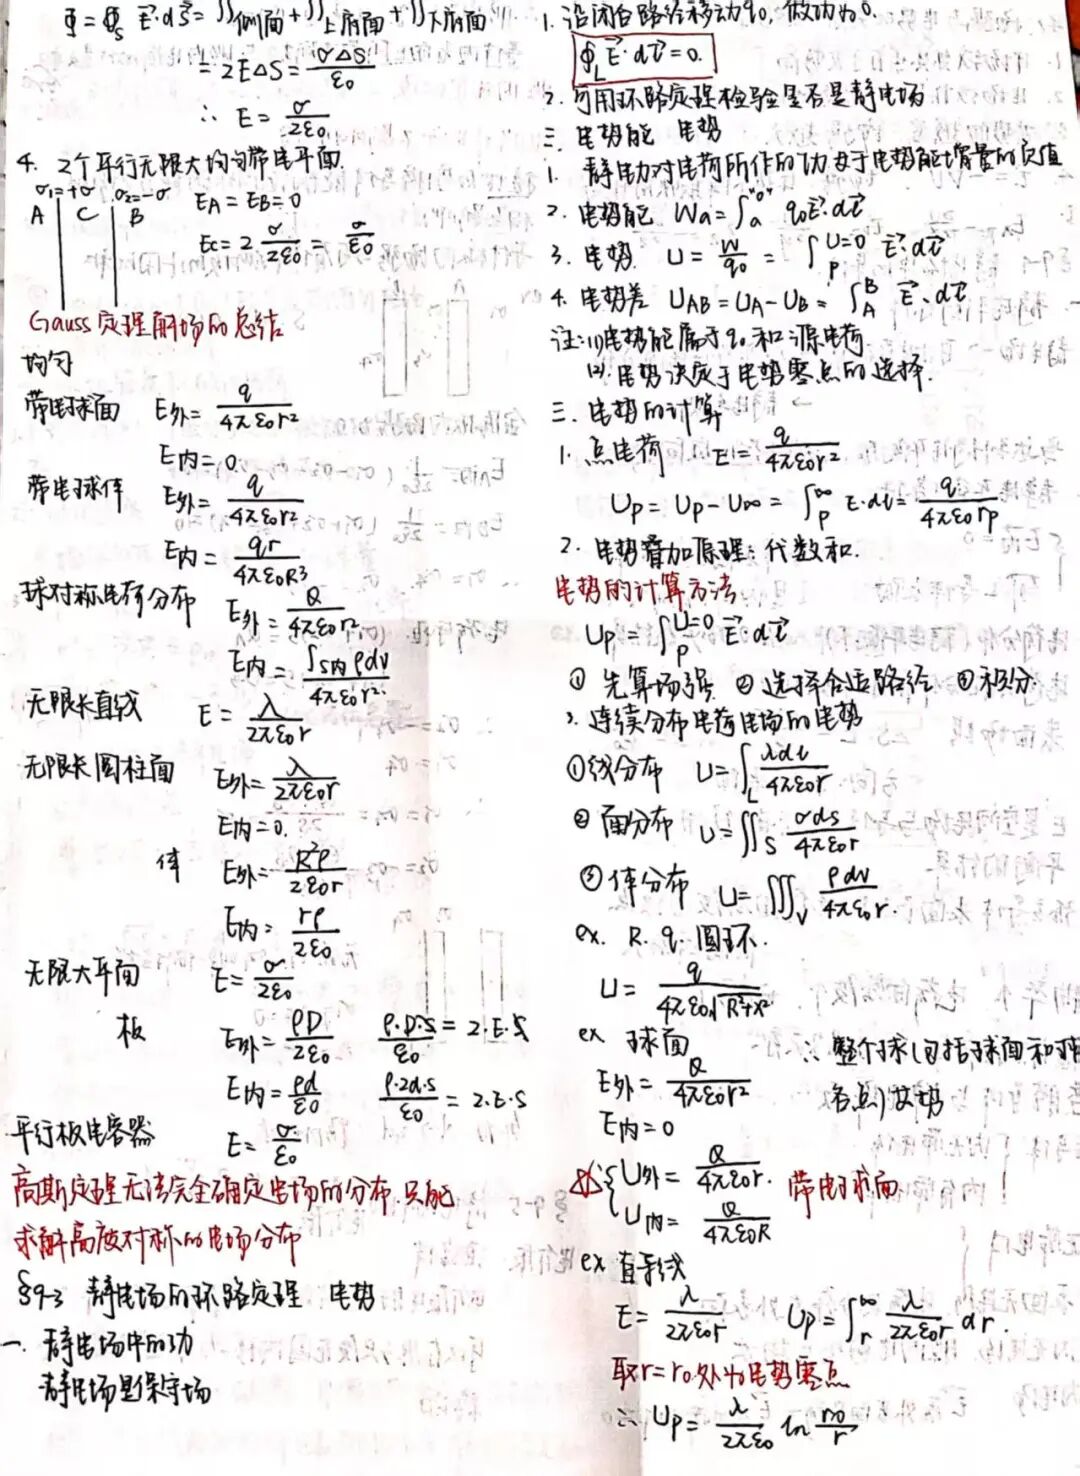 Φ = ∯_S E⃗·dS⃗ = ∬侧面 + ∬上底面 + ∬下底面
= 2EΔS = σΔS/ε₀
∴ E = σ/2ε₀
4. 2个平行无限大均匀带电平面
σ₁=+σ σ₂=-σ
A C B
E_A = E_B = 0
E_C = 2 σ/2ε₀ = σ/ε₀
Gauss定理解场的总结
均匀
带电球面 E外 = q/4πε₀r²
E内 = 0
带电球体 E外 = q/4πε₀r²
E内 = qr/4πε₀R³
球对称电荷分布 E外 = Q/4πε₀r²
E内 = ∫_S内 ρdv/4πε₀r²
无限长直线 E = λ/2πε₀r
无限长圆柱面 E外 = λ/2πε₀r
E内 = 0.
体 E外 = R²ρ/2ε₀r
E内 = rρ/2ε₀
无限大平面 E = σ/2ε₀
板 E外 = ρD/2ε₀ ρ·D·S/ε₀ = 2·E·S
E内 = ρd/ε₀ ρ·2d·S/ε₀ = 2·E·S
平行板电容器 E = σ/ε₀
高斯定理无法完全确定电场的分布,只能
求解高度对称的电场分布
§9-3 静电场的环路定理 电势
一. 静电场中的功
静电场是保守场
1. 沿闭合路径移动q₀, 做功为0
∮_L E⃗·dl⃗ = 0.
2. 可用环路定理检验是否是静电场
二 电势能 电势
1. 静电力对电荷所作的功等于电势能增量的负值
2. 电势能 Wa = ∫_a^"0" q₀E⃗·dl⃗
3. 电势 U = W/q₀ = ∫_P^U=0 E⃗·dl⃗
4. 电势差 U_AB = U_A - U_B = ∫_A^B E⃗·dl⃗
注: (1)电势能属于q₀和源电荷
(2). 电势决定于电势零点的选择.
三. 电势的计算
1. 点电荷 E = q/4πε₀r²
U_P = U_P - U∞ = ∫_P^∞ E·dl = q/4πε₀r_P
2. 电势叠加原理: 代数和.
电势的计算方法
U_P = ∫_P^U=0 E⃗·dl⃗
① 先算场强 ② 选择合适路径 ③ 积分
3. 连续分布电荷电场的电势
①线分布 U = ∫_L λdl/4πε₀r
② 面分布 U = ∬_S σds/4πε₀r
③ 体分布 U = ∭_V ρdv/4πε₀r.
ex. R. q. 圆环.
U = q/4πε₀√R²+x²
ex 球面 ∴ 整个球(包括球面和球
E外 = Q/4πε₀r²
E内 = 0
U外 = Q/4πε₀r. 带电球面
U内 = Q/4πε₀R
ex 直导线
E = λ/2πε₀r U_P = ∫_r^∞ λ/2πε₀r dr.
取r=r₀处为电势零点
∴ U_P = λ/2πε₀ ln r₀/r